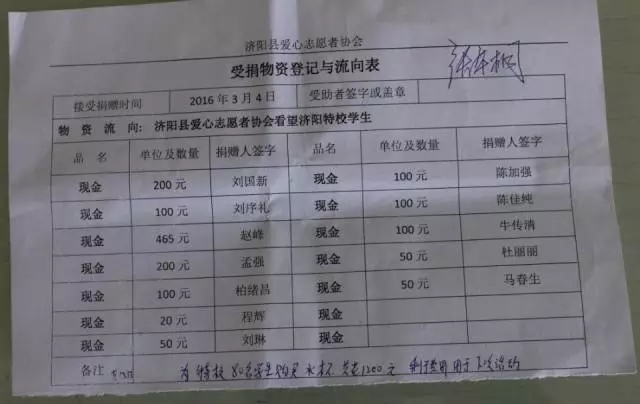 济阳县爱心志愿者协会
受捐物资登记与流向表
接受捐赠时间 2016年3月4日 受助者签字或盖章
物资流向: 济阳县爱心志愿者协会看望济阳特校学生
品名 单位及数量 捐赠人签字 品名 单位及数量 捐赠人签字
现金 200元 刘国新 现金 100元 陈加强
现金 100元 刘序礼 现金 100元 陈佳纯
现金 465元 赵峰 现金 100元 牛传清
现金 200元 孟强 现金 50元 杜丽丽
现金 100元 柏绪昌 现金 50元 马春生
现金 20元 程辉 现金
现金 50元 刘琳 现金
备注 为特校80名学生购买水杯 1200元 费用用于下次活动